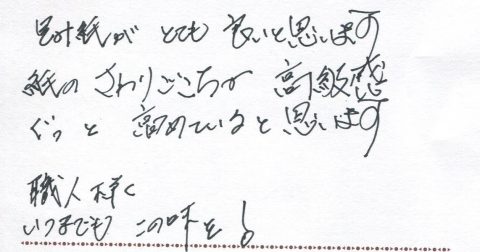 包み紙が とても 良いと思います
紙の さわりごこちが 高級感
ぐっと 高めていると 思います
職人様く
いつまでも この味を!